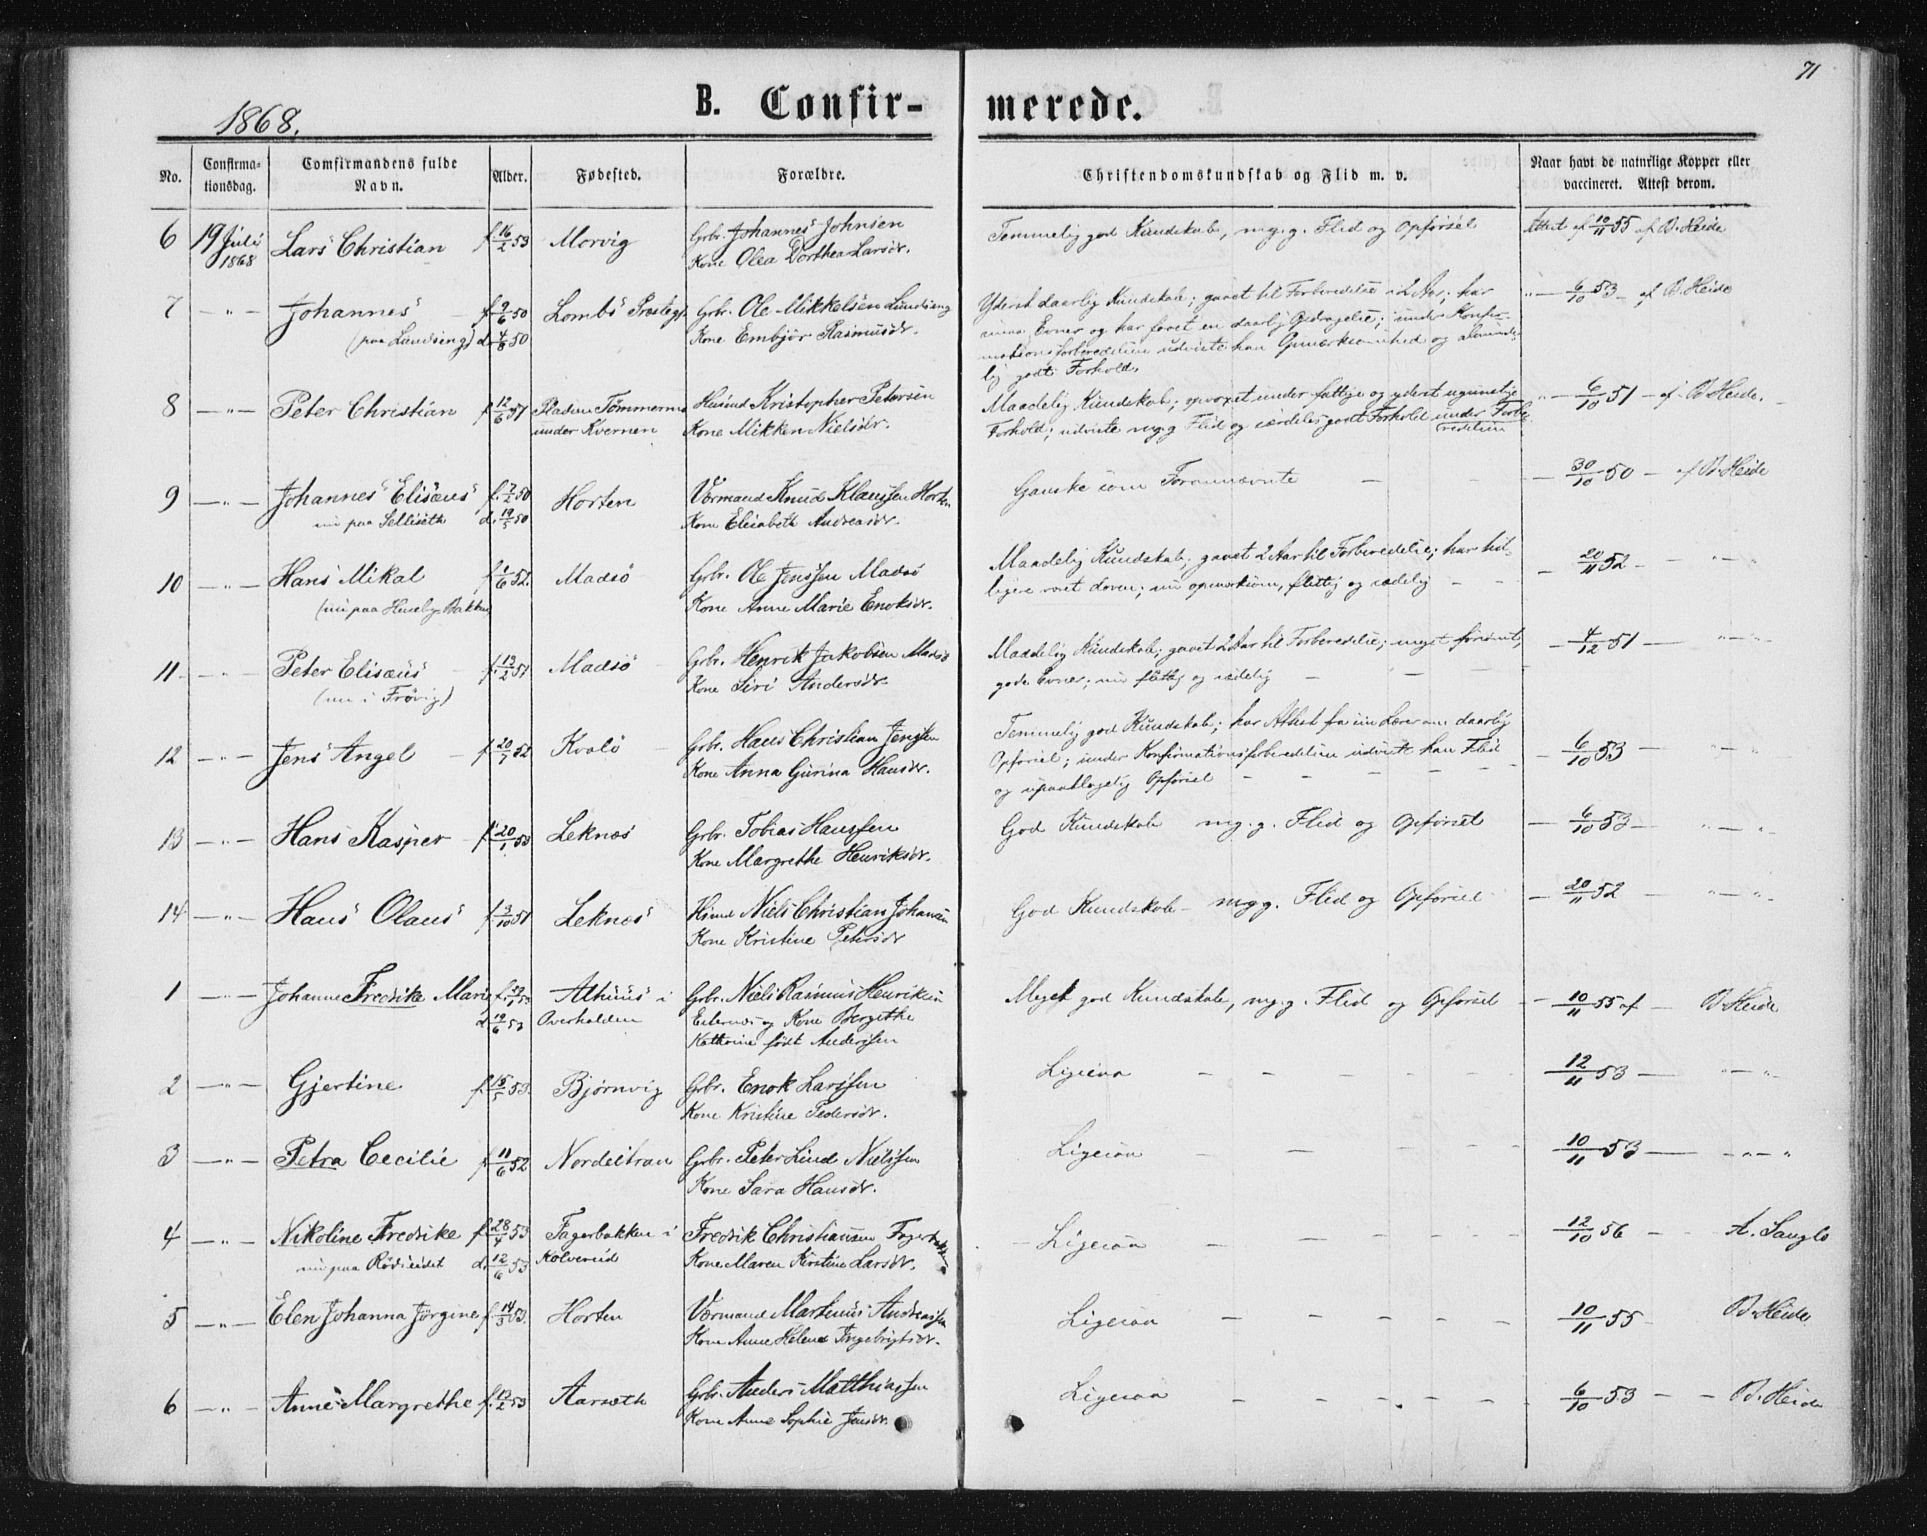 71
1868.
B. Confirmerede.
No.
Confirmationsdag.
Comfirmandens fulde Navn.
Alder.
Fødested.
Forældre.
Christendomskundskab og Flid m. v.
Naar havt de naturlige Kopper eller vaccineret. Attest derom.
6 19 Juli 1868 Lars Christian f. 16/2 53 Morvig Grbr. Johannes Johnsen
Kone Olea Dorthea Larsdr.
Temmelig god Kundskab, mg. g. Flid og Opførsel Attest af 10/11 55 af B. Heide
7 — " — Johannes f. 9/6 50 Lombs Præstegj. Grbr. Ole Mikkelsen Lundseng
(paa Lundseng) d. 4/8 50 Kone Embjør Rasmusdr.
Yderst daarlig Kundskab; gaaet til Forberedelse i 2 Aar; har
smaa Evner og har faaet en daarlig Opdragelse; under Konfir-
mationsforberedelsen udviste han Opmærksomhed og alminde-
lig godt Forhold.
" — 6/10 53 — af B. Heide
8 — " — Peter Christian f. 12/6 51 Pladsen Tømmermo Husmd Kristopher Petersen
under Kvernen Kone Mikken Nielsdr.
Maadelig Kundskab; opvoxet under fattige og yderst ugunstige
Forhold; udviste mg. g. Flid og særdeles godt Forhold under Forbe-
redelsen
" — 6/10 51 — af B. Heide.
9 — " — Johannes Elisæus f. 7/2 50 Horten Værmand Knud Klaussen Horten
nu paa Sellisæth d. 19/5 50 Kone Elisabeth Andreasdr.
Ganske som Forannævnte — 30/10 50 — af B. Heide
10 — " — Hans Mikal f. 1/6 52. Madsø Grbr. Ole Jenssen Madsø
(nu paa Huseby Bakken) Kone Anne Marie Enoksdr.
Maadelig Kundskab; gaaet 2 Aar til Forberedelse; har tid-
ligere været doven; nu opmærksom, flittig og sædelig — 20/11 52 — " — " —
11 — " — Peter Elisæus f. 13/2 51 Madsø Grbr. Henrik Jakobsen Madsø
(nu i Frøvig) Kone Siri Andersdr.
Maadelig Kundskab; gaaet 2 Aar til Forberedelse; meget forsømt,
gode Evner; nu flittig og sædelig — 4/12 51 — " — " —
12 — " — Jens Angel f. 20/1 52 Kvalø Grbr. Hans Christian Jenssen
Kone Anna Gurina Hansdr.
Temmelig god Kundskab; har Attest fra sin Lærer om daarlig
Opførsel; under Konfirmationsforberedelsen udviste han Flid
og upaaklagelig Opførsel — 6/10 53 — " — "
13 — " — Hans Kasper f. 20/1 53 Leknæs Grbr. Tobias Hanssen
Kone Margrethe Henriksdr.
God Kundskab mg. g. Flid og Opførsel — 6/10 53 — " — "
14 — " — Hans Olaus f. 3/10 51 Leknæs Husmd Niels Christian Johansen
Kone Kristine Petersdr
God Kundskab — mg g. Flid og Opførsel — 20/11 52 — " — "
1 — " — Johanne Fredrika Marie f. 22/1 53 Athuus i Grbr. Niels Rasmus Henriksen
d. 19/6 53 Overhalden Eiternæs og Kone Bergithe
Kathrine født Anderssen
Meget god Kundskab, mg. g. Flid og Opførsel — 10/11 55 af — B. Heide
2 — " — Gjertine f. 15/5 53. Bjørnvig Grbr. Enok Larssen
Kone Kristine Pedersdr.
Ligesaa — 12/11 53 — " — "
3 — " — Petra Cecilie f. 11/6 52 Nordeltran Grbr. Peter Lind Nielssen
Kone Sara Hansdr.
Ligesaa — 10/11 53 — " — "
4 — " — Nikoline Fredrike f. 28/4 53 Fagerbakken i Fredrik Christiansen Fagerbakken
nu paa Rødseidet d. 12/6 53 Kolvereid Kone Maren Kirstine Larsdr.
— Ligesaa — 12/10 56 — A. Sanglo
5 — " — Elen Johanna Jørgine f. 14/5 53. Horten Værmand Martinus Andreassen
Kone Anne Helene Ingebrigtsdr.
Ligesaa — 10/11 55 B. Heide
6 — " — Anne Margrethe f. 19/2 53 Aarsæth Grbr. Anders Matthiassen
Kone Anne Sophie Jensdr.
Ligesaa — 6/10 53 — — B. Heide